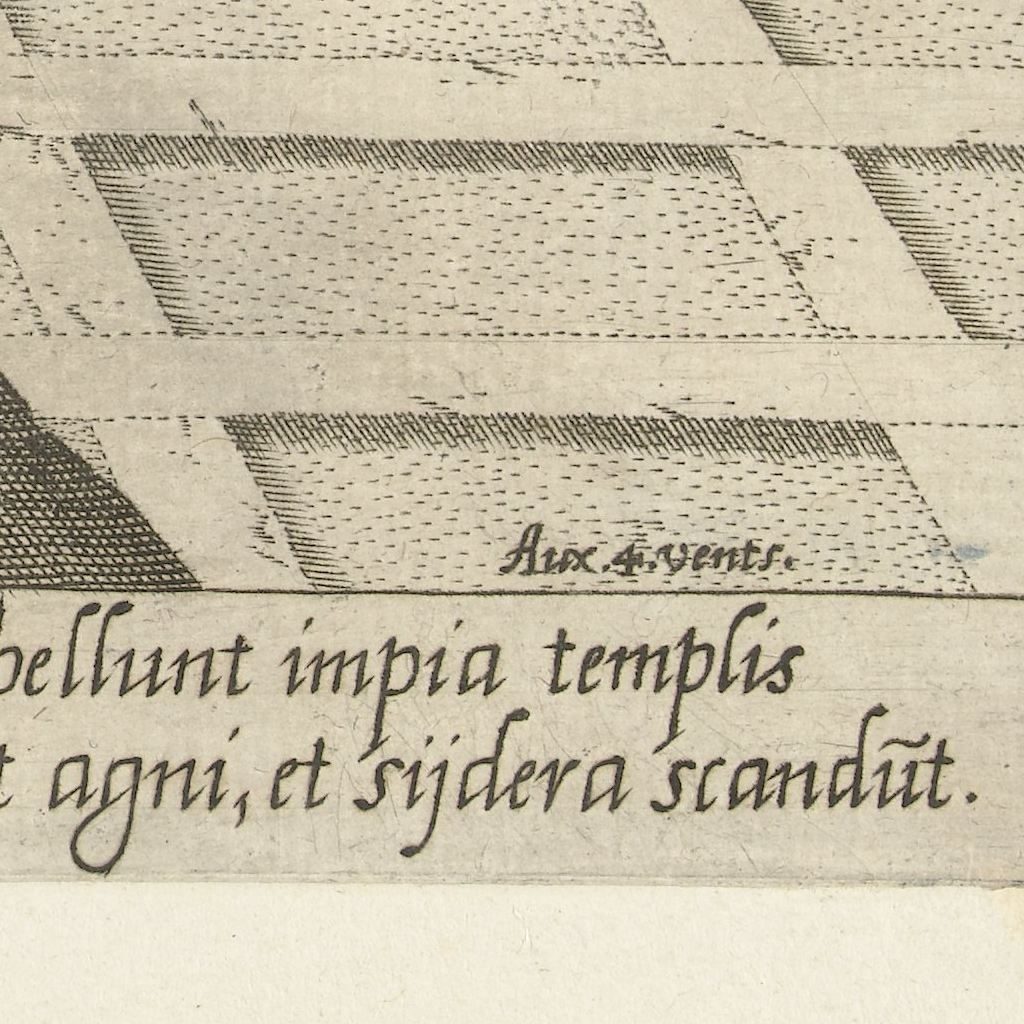 Aux.4.vents.
pellunt impia templis
t agni, et sijdera scandũt.